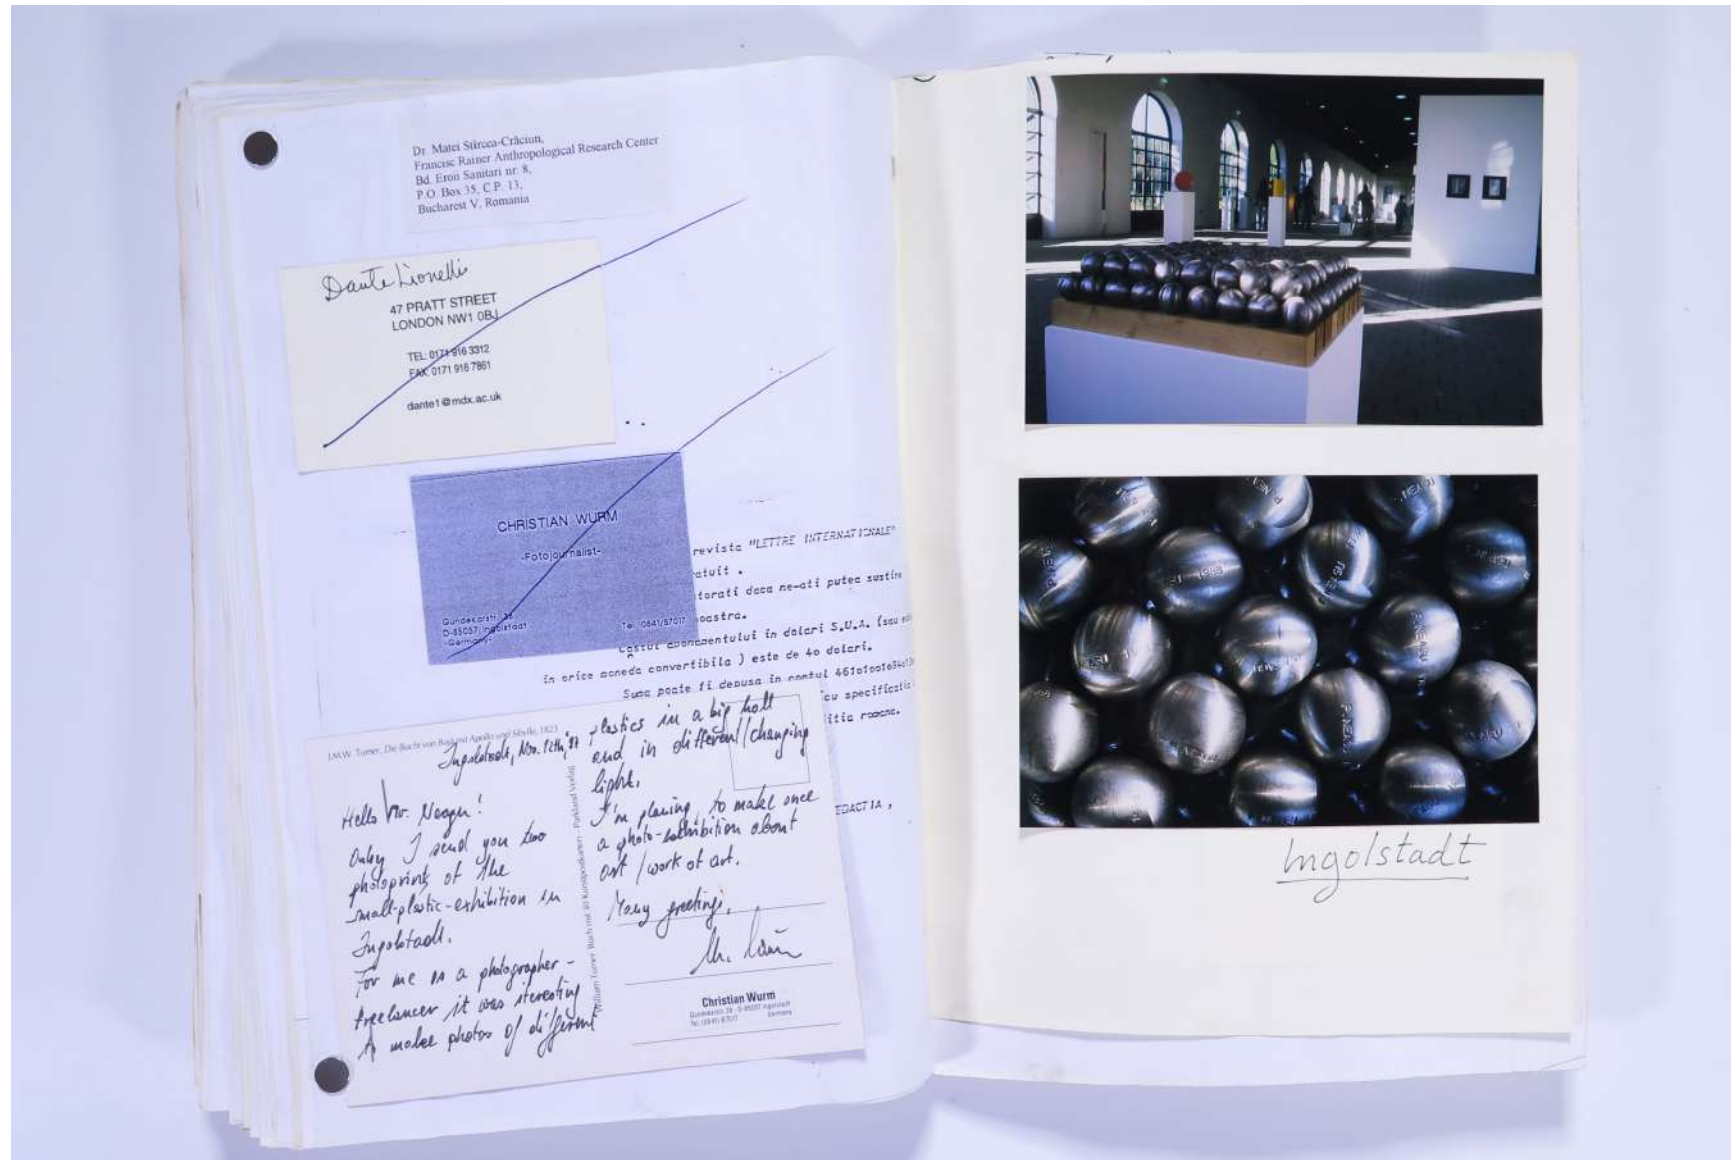 Dr. Matei Stîrcea-Crăciun,
Francisc Rainer Anthropological Research Center
Bd. Eroii Sanitari nr. 8,
P.O. Box 35, C.P. 13,
Bucharest V, Romania
Dante Lionellis
47 PRATT STREET
LONDON NW1 0BJ
TEL: 0171 916 3312
FAX: 0171 916 7861
dante1@mdx.ac.uk
CHRISTIAN WURM
-Fotojournalist-
Gundekarstr.
D-85057 Ingolstadt
-Germany-
Tel. 0841/87017
reviste "LETTRE INTERNATIONALE"
atuit .
torati daca ne-ati putea sustine
oastra.
Costul abonamentului in dolari S.U.A. (sau
in orice moneda convertibila ) este de 4o dolari.
Suma poate fi depusa in contul
cu specificatia
itia romana.
EDACTIA ,
J.M.W. Turner, Die Bucht von Baiä mit Apollo und Sibylle, 1823
Ingolstadt, Nov. 12th, 97
Hello Mr. Neagu!
Only I send you two
photoprints of the
small-plastic-exhibition in
Ingolstadt.
For me as a photographer-
freelancer it was interesting
to make photos of different
William Turner Buch mit 30 Kunstpostkarten - Parkland Verlag
plastics in a big hall
and in different/changing
light.
I'm planing to make once
a photo-exhibition about
art / work of art.
Many greetings,
Christian Wurm
D-85057 Ingolstadt
Tel. (0841) 87017 Germany
P.NEAGU
1988
Ingolstadt